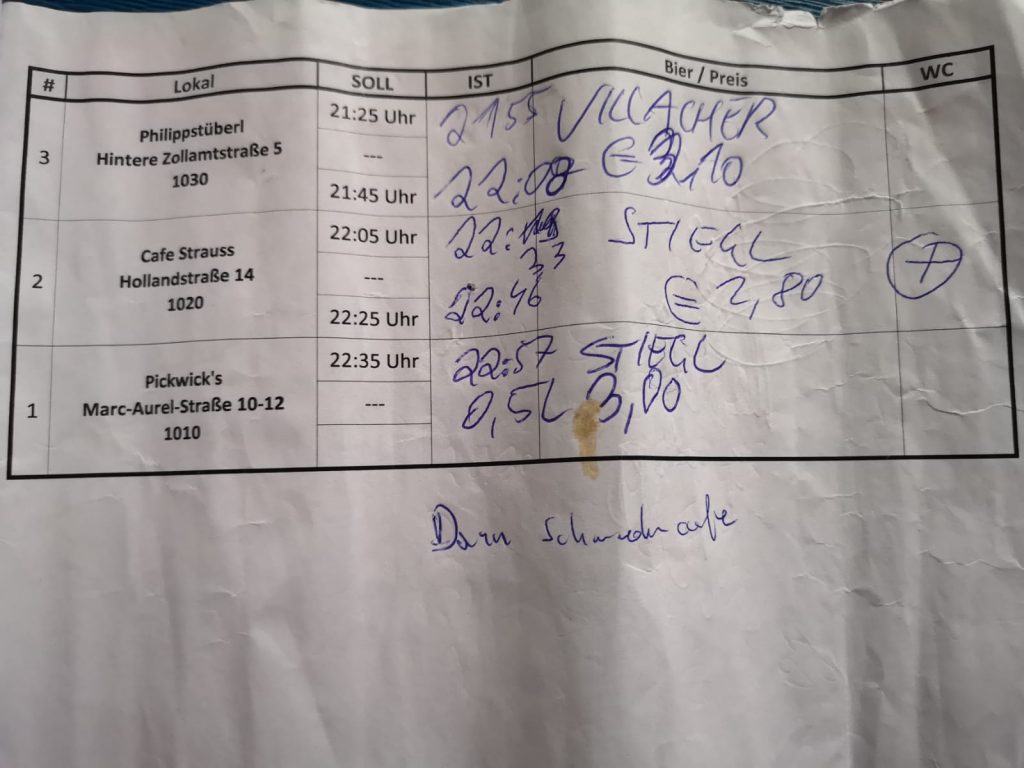 # Lokal SOLL IST Bier / Preis WC
3
Philippstüberl
Hintere Zollamtstraße 5
1030
21:25 Uhr
---
21:45 Uhr
2155
22:08
VILLACHER
€ 3,10
2
Cafe Strauss
Hollandstraße 14
1020
22:05 Uhr
---
22:25 Uhr
22:
33
22:46
STIEGL
€ 2,80
+
1
Pickwick's
Marc-Aurel-Straße 10-12
1010
22:35 Uhr
---
22:57 STIEGL
0,5L 3,00
Dann